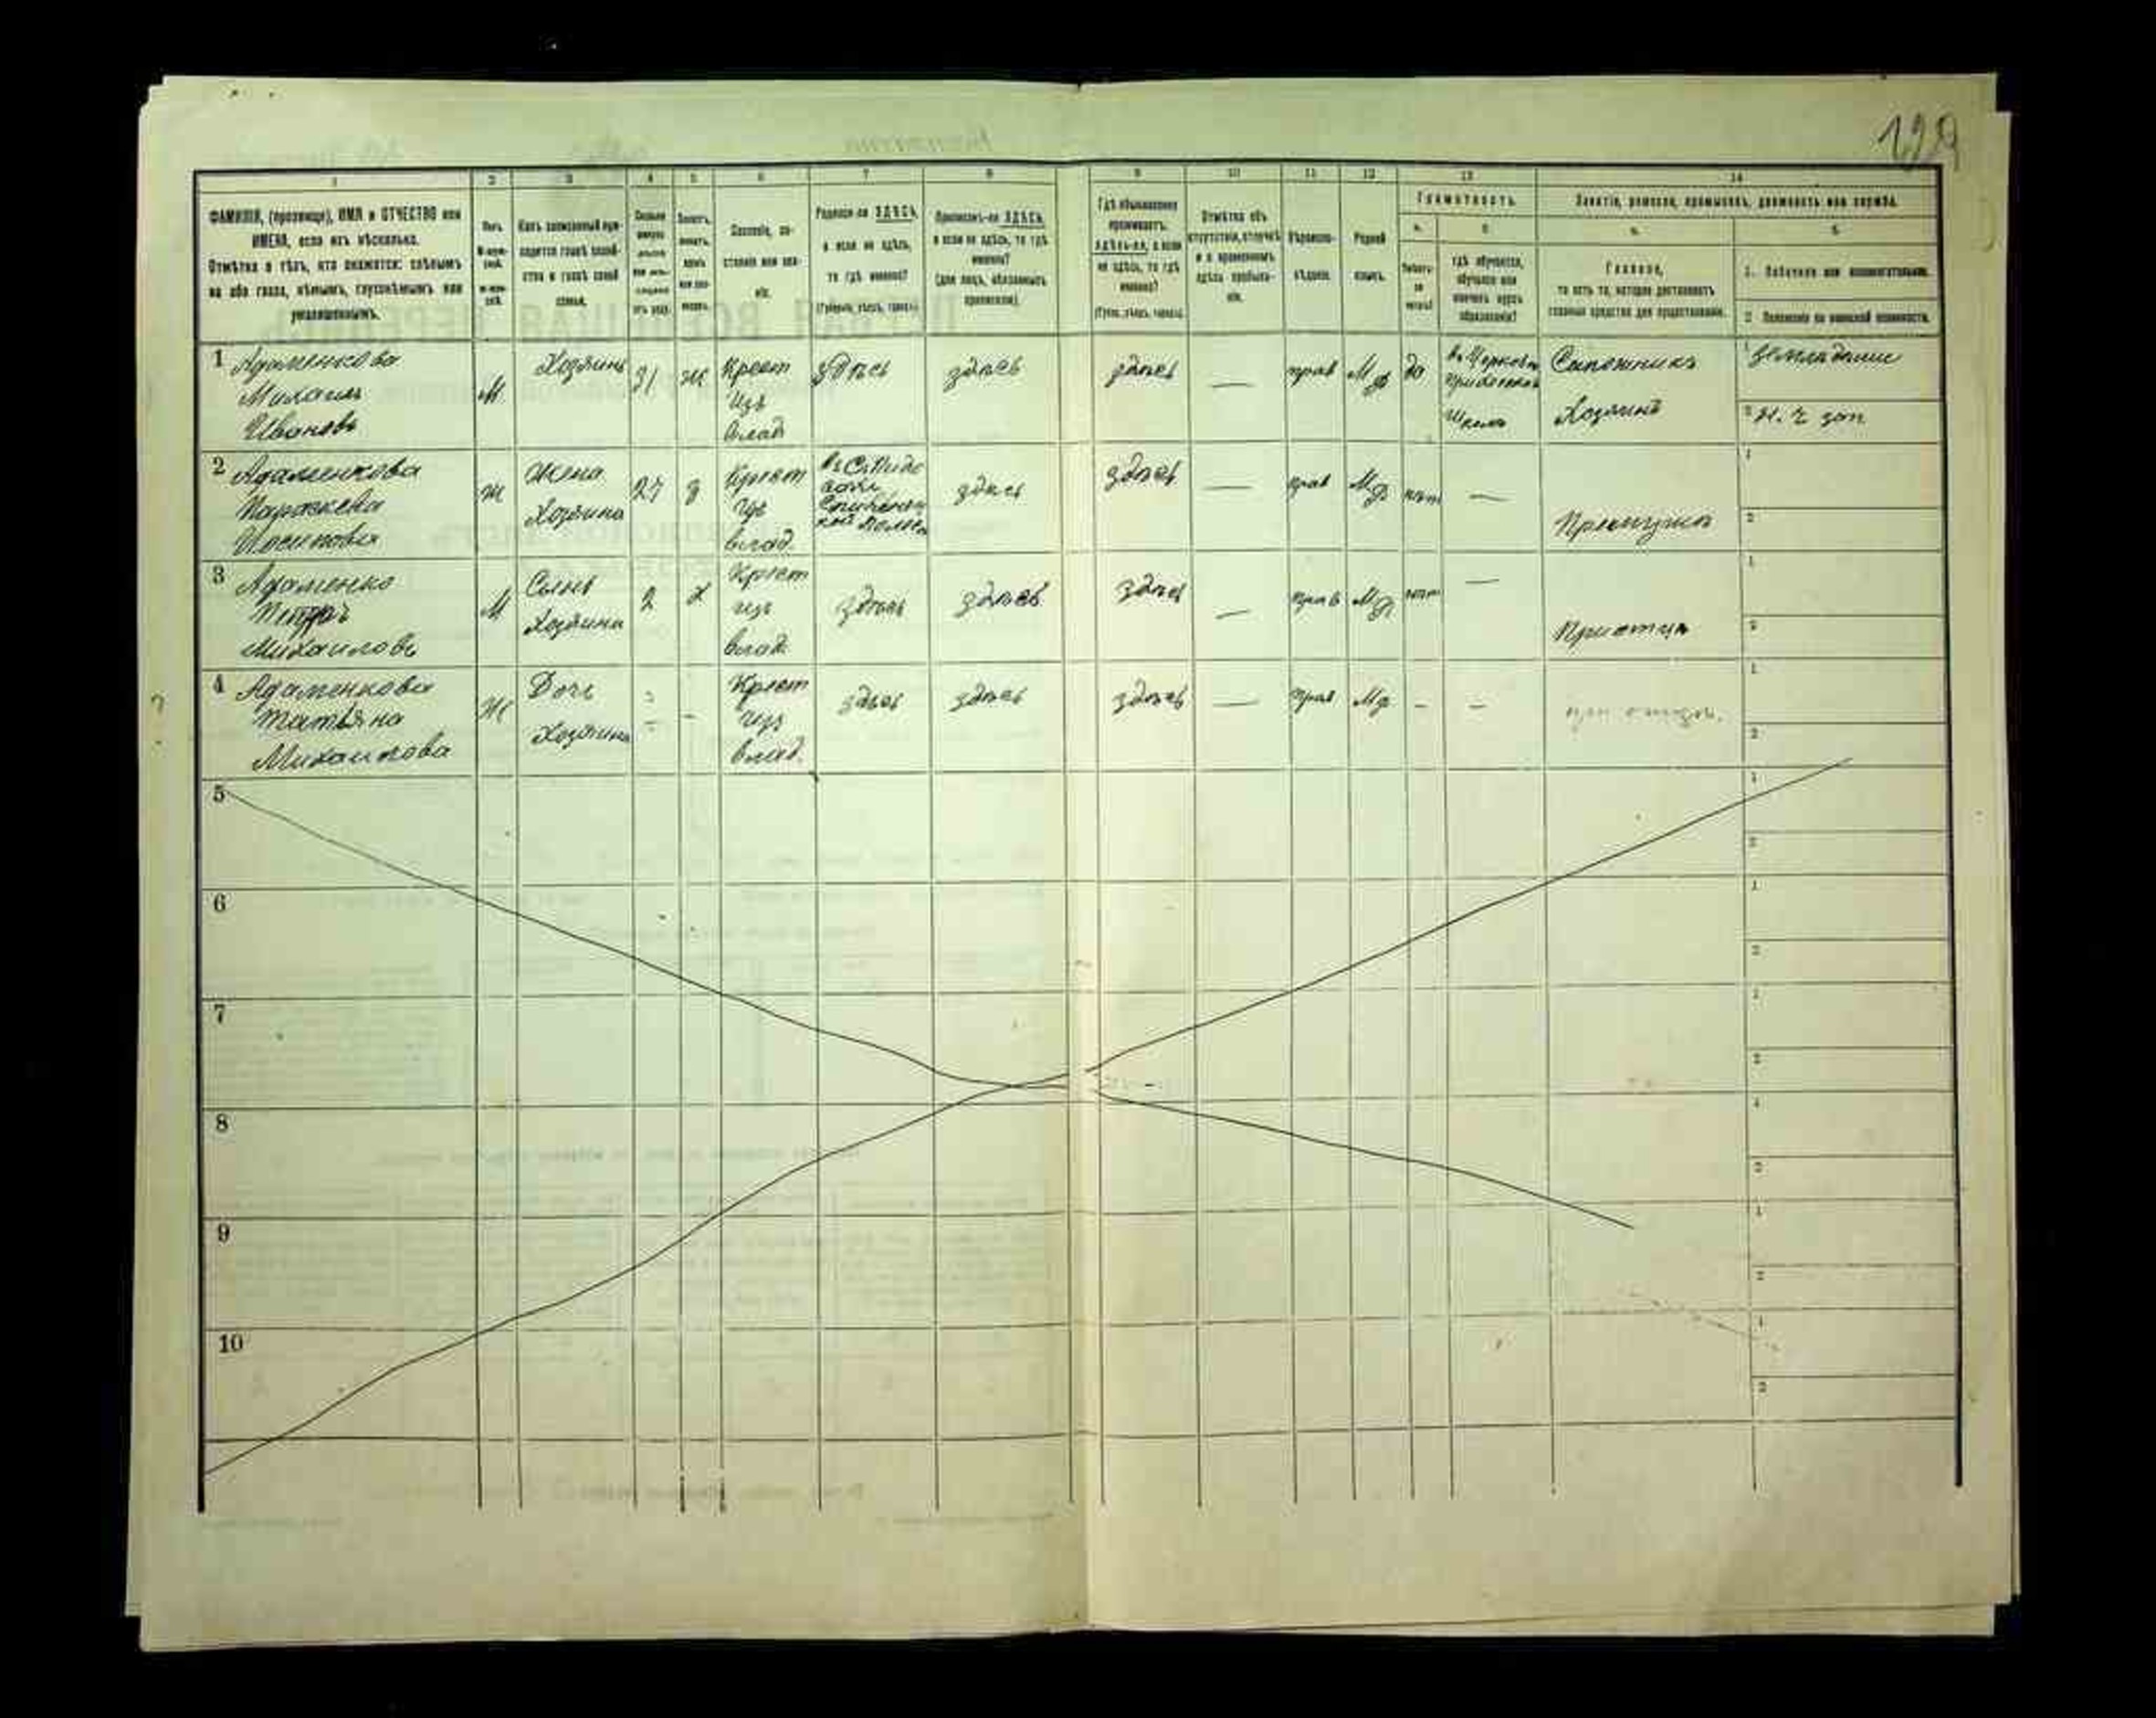 129
1 2 3 4 5 6 7 8 9 10 11 12 13 14
ФАМИЛІЯ, (прозвище), ИМЯ и ОТЧЕСТВО или
ИМЕНА, если ихъ нѣсколько.
Отмѣтка о тѣхъ, кто окажется: слѣпымъ
на оба глаза, нѣмымъ, глухонѣмымъ или
умалишеннымъ.
Полъ.
Какъ записанный при-
ходится главѣ хозяй-
ства и главѣ своей
семьи.
Сословіе, со-
стояніе или зва-
ніе.
Родился-ли ЗДѢСЬ,
а если не здѣсь,
то гдѣ именно?
(Губернія, уѣздъ, городъ).
Приписанъ-ли ЗДѢСЬ,
а если не здѣсь, то гдѣ
именно?
(для лицъ, обязанныхъ
припиской).
Гдѣ обыкновенно
проживаетъ:
здѣсь-ли, а если
не здѣсь, то гдѣ
именно?
(Губ., уѣздъ, городъ).
Отмѣтка объ
отсутствіи, отлучкѣ
и о временномъ
здѣсь пребыва-
ніи.
Вѣроиспо-
вѣданіе.
Родной
языкъ.
Грамотность.
а. б.
Умѣетъ-
ли
читать?
гдѣ обучается,
обучался или
кончилъ курсъ
образованія?
Занятіе, ремесло, промыселъ, должность или служба.
а. б.
Главное,
то есть то, которое доставляетъ
главныя средства для существованія.
1. Побочное или вспомогательное.
2. Положеніе по воинской повинности.
1 Адаменкова
Михаилъ
Ивановъ
М
Хозяинъ
31
Ж
Крест
изъ
влад
здѣсь
здѣсь
здѣсь
—
прав
Мр
да
въ Церковн
приходской
школѣ
Сапожникъ
Хозяинъ
1 Земледѣліе
2
2 Адаменкова
Параскева
Иосипова
ж
Жена
Хозяина
27
з
Крест
изъ
влад.
здѣсь
здѣсь
—
прав
Мр
нѣт
—
1
2
3 Адаменко
Петръ
Михаиловъ
М
Сынъ
Хозяина
2
Х
Крест
изъ
влад.
здѣсь
здѣсь
здѣсь
—
прав
Мр
нѣт
—
1
2
4 Адаменкова
Татьяна
Михаилова
Ж
Дочь
Хозяина
–
Крест
изъ
влад.
здѣсь
здѣсь
здѣсь
—
прав
Мр
–
–
1
2
5
1
2
6
1
2
7
1
2
8
1
2
9
1
2
10
1
2